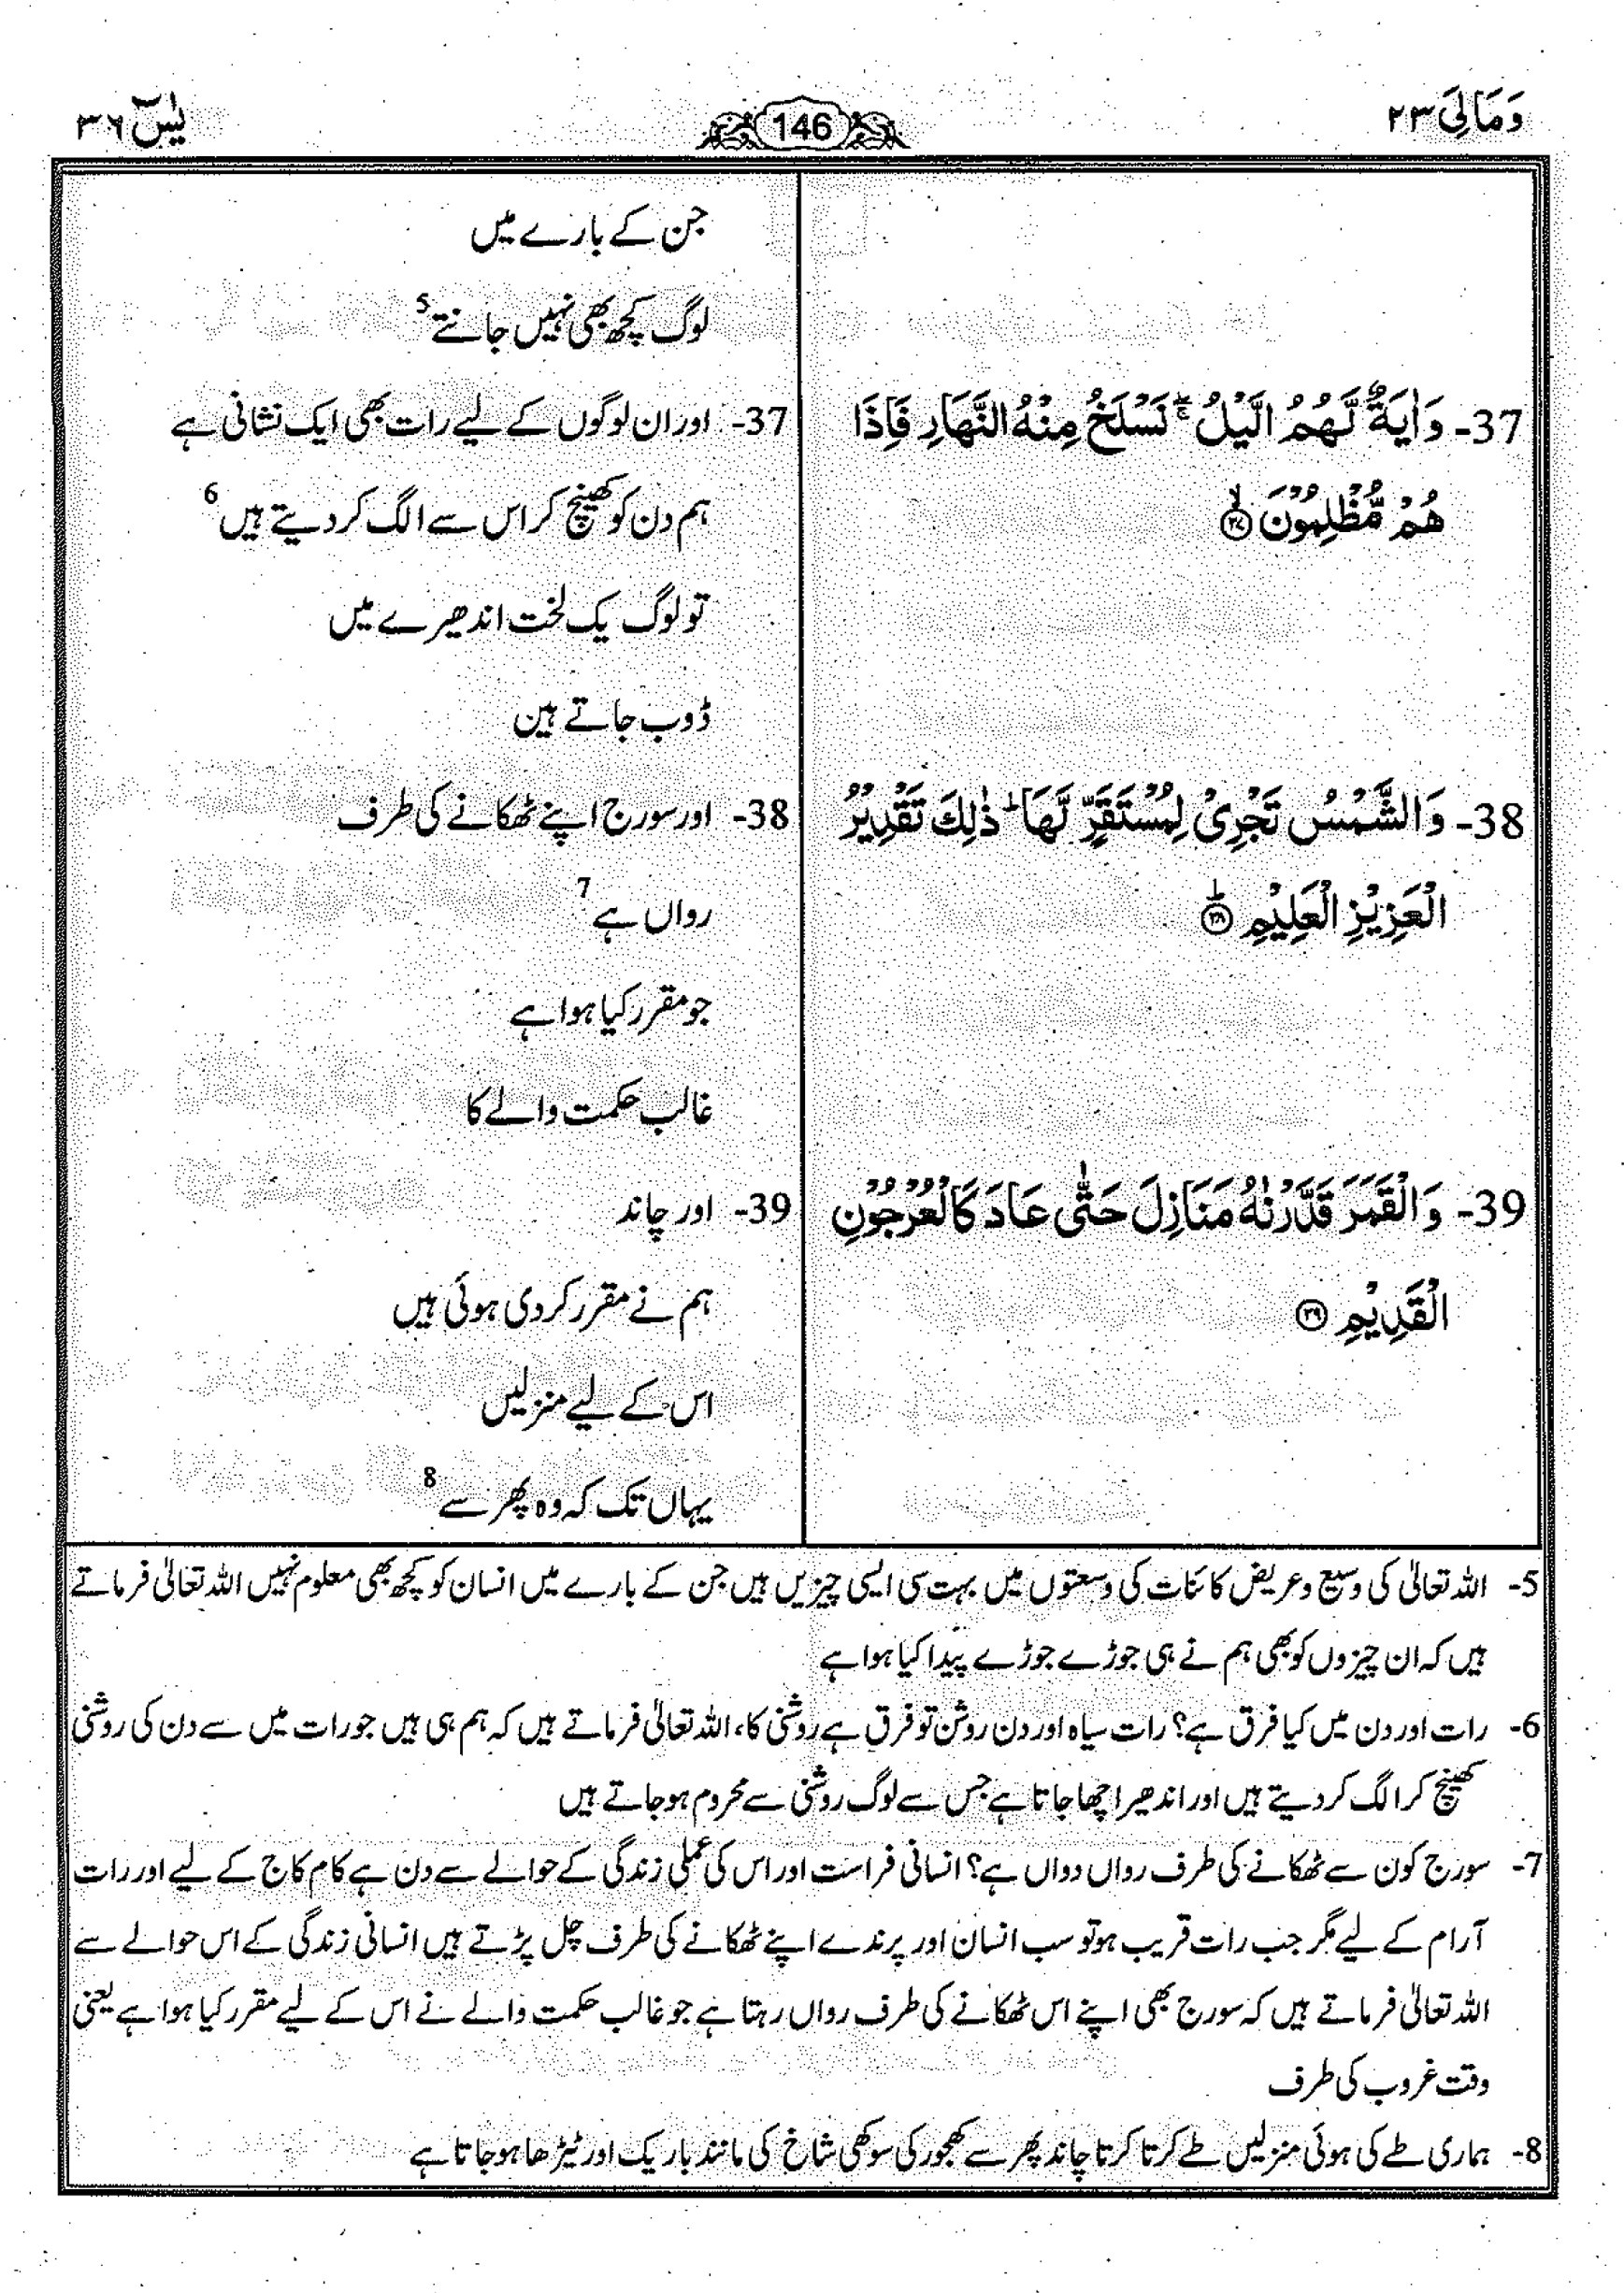 وَمَالِیَ ٢٣
146
یٰسٓ ٣٦
جن کے بارے میں
لوگ کچھ بھی نہیں جانتے 5
37- وَاٰيَةٌ لَّهُمُ الَّيْلُ ۖۚ نَسْلَخُ مِنْهُ النَّهَارَ فَاِذَا
هُمْ مُّظْلِمُوْنَ ۙ‏﴿۳۷﴾
37- اور ان لوگوں کے لیے رات بھی ایک نشانی ہے
ہم دن کو کھینچ کر اس سے الگ کر دیتے ہیں 6
تو لوگ یک لخت اندھیرے میں
ڈوب جاتے ہین
38- وَالشَّمْسُ تَجْرِیْ لِمُسْتَقَرٍّ لَّهَا ؕ ذٰلِكَ تَقْدِيْرُ
الْعَزِيْزِ الْعَلِيْمِ ؕ‏﴿۳۸﴾
38- اور سورج اپنے ٹھکانے کی طرف
رواں ہے 7
جو مقرر کیا ہوا ہے
غالب حکمت والے کا
39- وَالْقَمَرَ قَدَّرْنٰهُ مَنَازِلَ حَتّٰی عَادَ كَالْعُرْجُوْنِ
الْقَدِيْمِ ﴿۳۹﴾
39- اور چاند
ہم نے مقرر کر دی ہوئی ہیں
اس کے لیے منزلیں
یہاں تک کہ وہ پھر سے 8
5- اللہ تعالیٰ کی وسیع و عریض کائنات کی وسعتوں میں بہت سی ایسی چیزیں ہیں جن کے بارے میں انسان کو کچھ بھی معلوم نہیں اللہ تعالیٰ فرماتے
ہیں کہ ان چیزوں کو بھی ہم نے ہی جوڑے جوڑے پیدا کیا ہوا ہے
6- رات اور دن میں کیا فرق ہے؟ رات سیاہ اور دن روشن تو فرق ہے روشنی کا، اللہ تعالیٰ فرماتے ہیں کہ ہم ہی ہیں جو رات میں سے دن کی روشنی
کھینچ کر الگ کر دیتے ہیں اور اندھیرا چھا جاتا ہے جس سے لوگ روشنی سے محروم ہو جاتے ہیں
7- سورج کون سے ٹھکانے کی طرف رواں دواں ہے؟ انسانی فراست اور اس کی عملی زندگی کے حوالے سے دن ہے کام کاج کے لیے اور رات
آرام کے لیے مگر جب رات قریب ہو تو سب انسان اور پرندے اپنے ٹھکانے کی طرف چل پڑتے ہیں انسانی زندگی کے اس حوالے سے
اللہ تعالیٰ فرماتے ہیں کہ سورج بھی اپنے اس ٹھکانے کی طرف رواں رہتا ہے جو غالب حکمت والے نے اس کے لیے مقرر کیا ہوا ہے یعنی
وقت غروب کی طرف
8- ہماری طے کی ہوئی منزلیں طے کرتا کرتا چاند پھر سے کھجور کی سوکھی شاخ کی مانند باریک اور ٹیڑھا ہو جاتا ہے